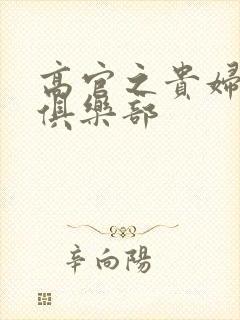 高官之貴婦
俱樂部
辛向陽